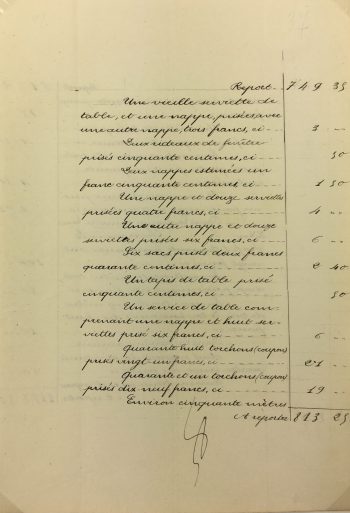 Report 749 35
Une vieille serviette de
table, et une nappe, prisées avec
une autre nappe, trois francs, ci 3 "
Deux rideaux de fenêtre
prisés cinquante centimes, ci 50
Deux nappes estimées un
franc cinquante centimes, ci 1 50
Une nappe et douze serviettes
prisées quatre francs, ci 4 "
Une autre nappe et douze
serviettes prisées six francs, ci 6 "
Six sacs prisés deux francs
quarante centimes, ci 2 40
Un tapis de table prisé
cinquante centimes, ci 50
Un service de table com-
prenant une nappe et huit ser-
viettes prisé six francs, ci 6
Quarante huit torchons (coupon)
prisés vingt-un francs, ci 21
Quarante et un torchons (coupon)
prisés dix neuf francs, ci 19
Environ cinquante mètres
A reporter 813 25